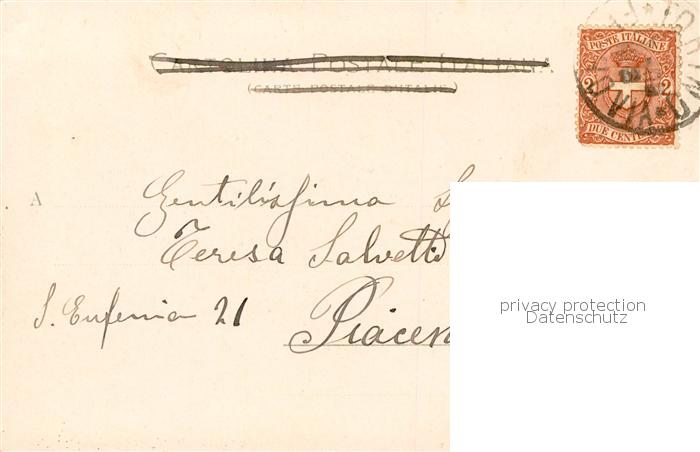 CARTOLINA POSTALE ITALIANA
(CARTE POSTALE D'ITALIE)
POSTE ITALIANE
2 2
DUE CENT
A Gentilissima
Teresa Salvetti
S. Eufemia 21
Piacen
privacy protection
Datenschutz